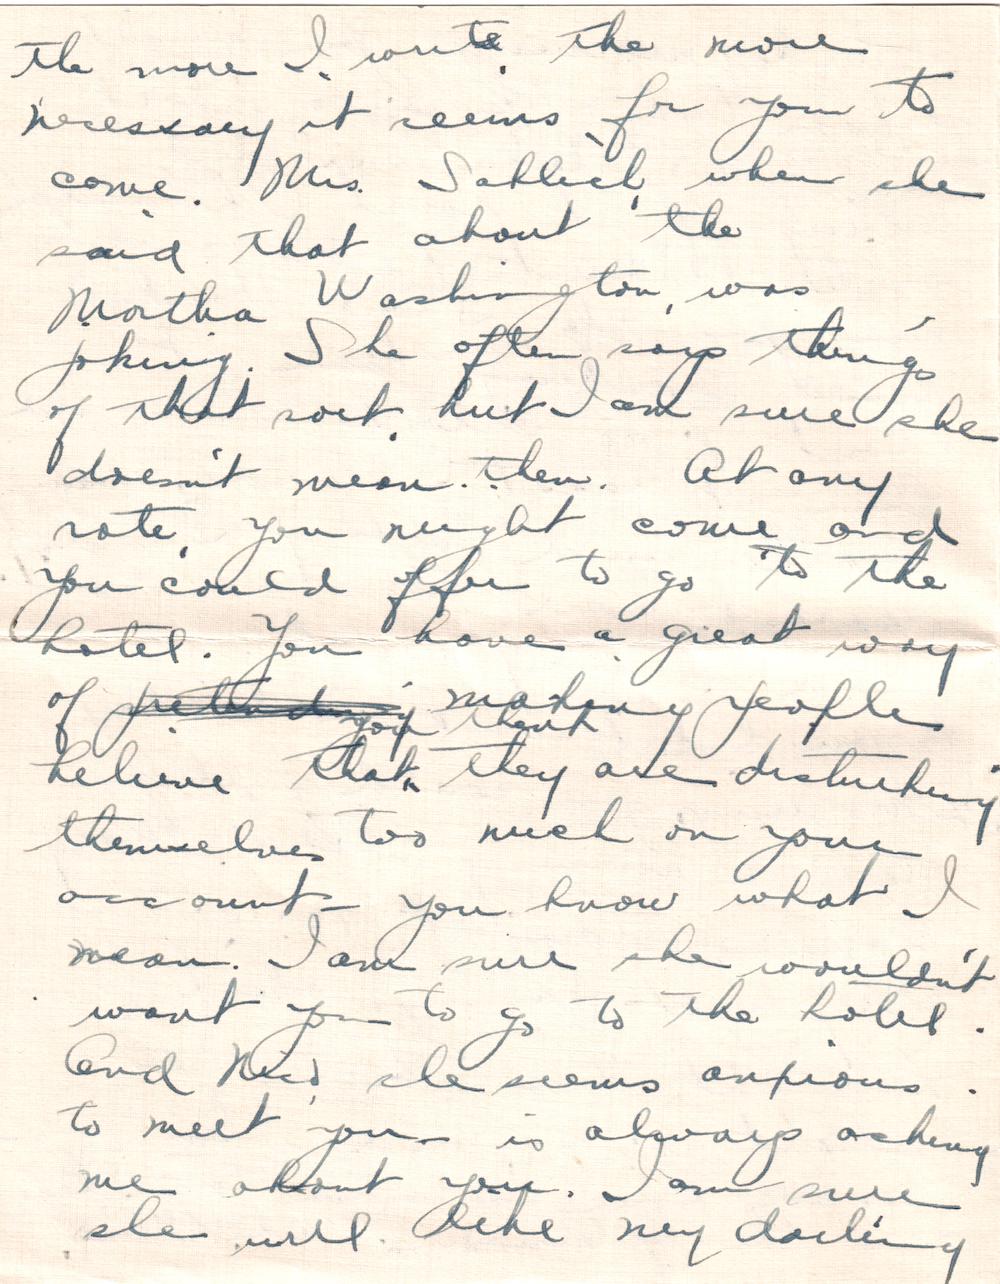 the more I write the more
necessary it seems for you to
come. Mrs. when she
said that about the
Martha Washington, was
joking. She often says things
of that sort, but I am sure she
doesn't mean them. At any
rate, you might come and
you could offer to go to the
hotel. You have a great way
of pretending making people
you think
believe that they are disturbing
themselves too much on your
account – you know what I
mean. I am sure she wouldn't
want you to go to the hotel.
And she seems anxious
to meet you – is always asking
me about you. I am sure
she will like my darling